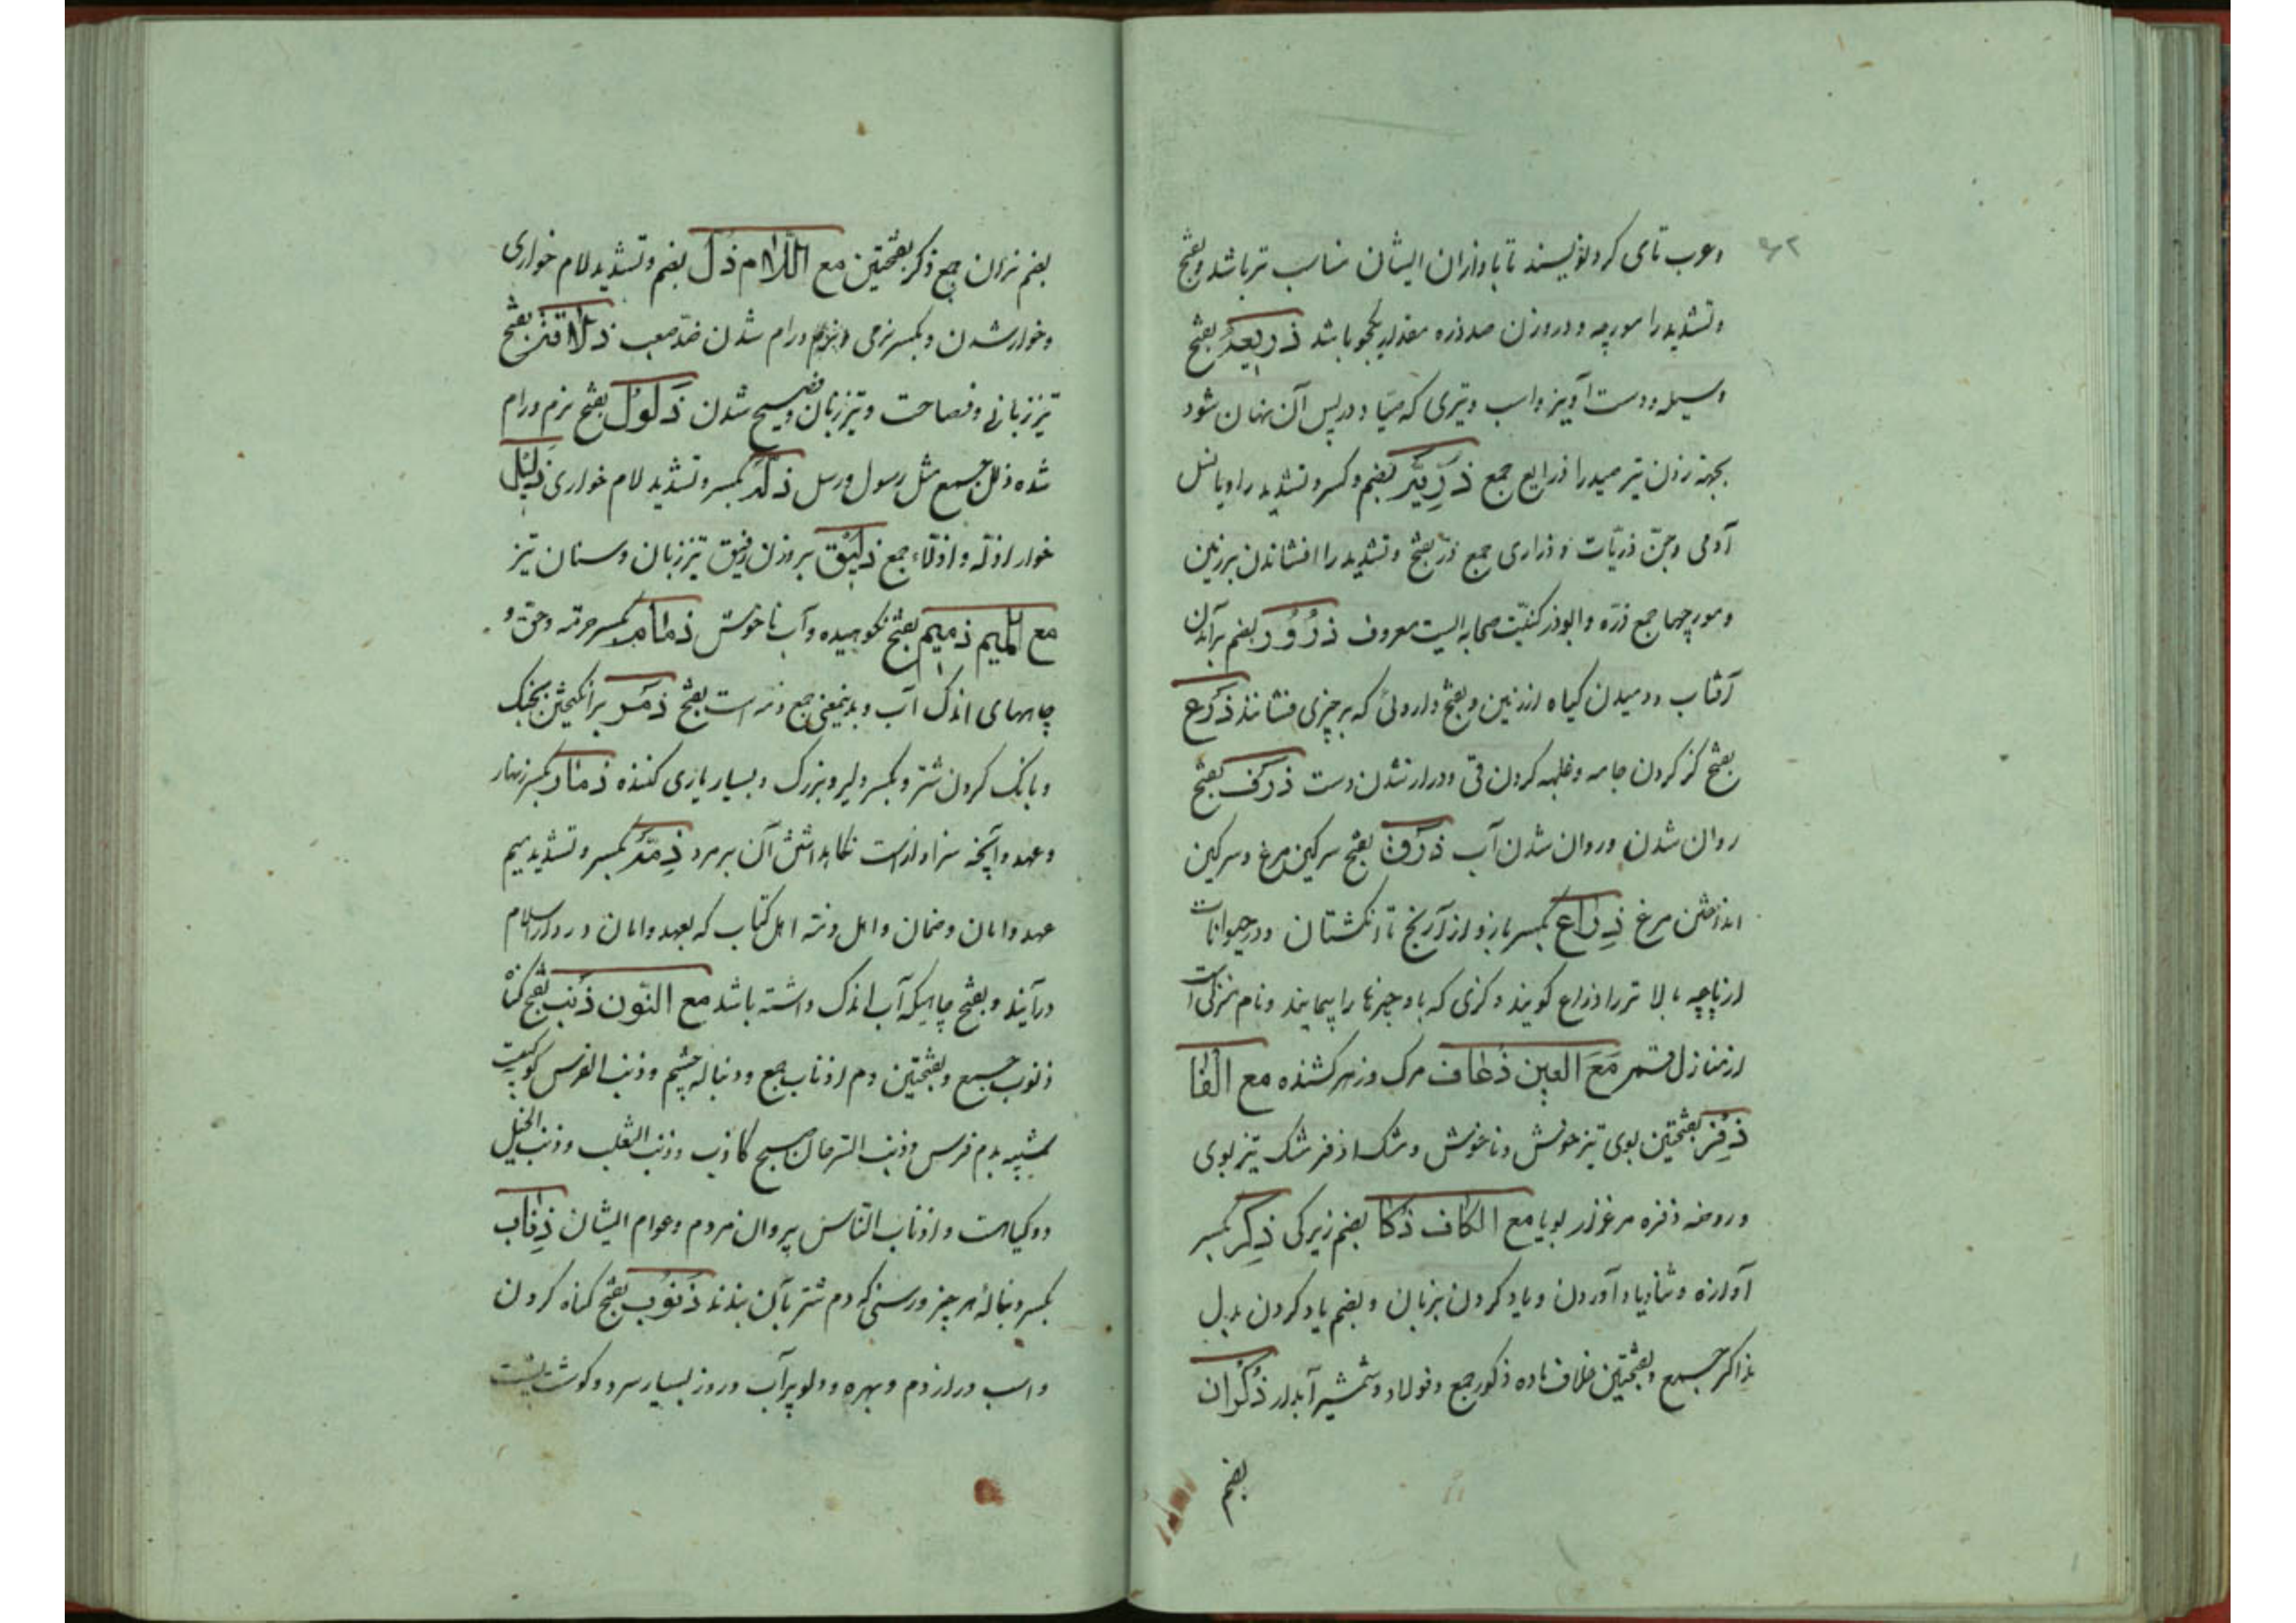 وعرب تای کرد نویسند تا باوزان ایشان مناسب تر باشد و بفتح
و تشدید را مورچه و در وزن صد ذره مقدار یکجو باشد ذریعة بفتح
وسیله و دست آویز و اسب و تیری که صیاد در پس آن پنهان شود
بجهة زدن تیر صید را ذرایع جمع ذریة بضم و کسر و تشدید را و یا نسل
آدمی و جن ذریات و ذراری جمع ذر بفتح و تشدید را افشاندن بر زمین
و مورچها جمع ذره و ابوذر کنیت صحابه ایست معروف ذرور بضم برآمدن
آفتاب و دمیدن گیاه از زمین و بفتح داروئی که بر چیزی فشانند ذرع
بفتح گز کردن جامه و غلبه کردن قی و دراز شدن دست ذرف بفتح
روان شدن و روان شدن آب ذرق بفتح سرکین مرغ و سرکین
انداختن مرغ ذراع بکسر بازو از آرنج تا انکشتان و در حیوانات
از پاچه بالا تر را ذراع کویند و کزی که باو چیزها را پیمایند و نام منزلی است
از منازل قمر مع العین ذعاف مرک و زهر کشنده مع الفا
ذفر بفتحتین بوی تیز خوش و ناخوش و مشک اذفر مشک تیز بوی
و روضه ذفره مرغزار بویا مع الکاف ذکا بضم زیرکی ذکر بکسر
آوازه و ثنا و یاد آوردن و یاد کردن بزبان و بضم یاد کردن بدل
جمع و بفتحتین خلاف ماده ذکور جمع و فولاد و شمشیر آبدار ذکران
بضم
بضم نران جمع ذکر بفتحتین مع اللام ذل بضم و تشدید لام خواری
و خوار شدن و بکسر نرمی و رام شدن ضد صعب ذلاقة بفتح
تیز زبانی و فصاحت و تیز زبان و فصیح شدن ذلول بفتح نرم و رام
شده ذلل جمع مثل رسول و رسل ذلة بکسر و تشدید لام خواری ذلیل
خوار اذله و اذلاء جمع ذلیق بر وزن رفیق تیز زبان و سنان تیز
مع المیم ذمیم بفتح نکوهیده و آب ناخوش ذمام بکسر حرمة و حق و
چاههای اندک آب و بدینمعنی جمع ذمه است بفتح ذمر برانکیختن بجنک
و بانک کردن شتر و بکسر دلیر و بزرک و بسیار یاری کننده ذمار بکسر زنهار
و عهد و آنچه سزاوار است نکاهداشتن آن بر مرد ذمة بکسر و تشدید میم
عهد و امان و ضمان و اهل ذمه اهل کتاب که بعهد و امان در دار اسلام
درآیند و بفتح چاهیکه آب اندک داشته باشد مع النون ذنب بفتح کناه
ذنوب جمع و بفتحتین دم اذناب جمع و دنباله چشم و ذنب الفرس کوکبیست
شبیه بدم فرس و ذنب السرحان صبح کاذب و ذنب الثعلب و ذنب الخیل
دو کیاهست و اذناب الناس پیروان مردم و عوام ایشان ذناب
بکسر دنبالهٔ هر چیز و رسنی که دم شتر بآن بندند ذنوب بفتح کناه کردن
و اسب دراز دم و بهره و دلو پر آب و روز بسیار سرد و کوشت پشت